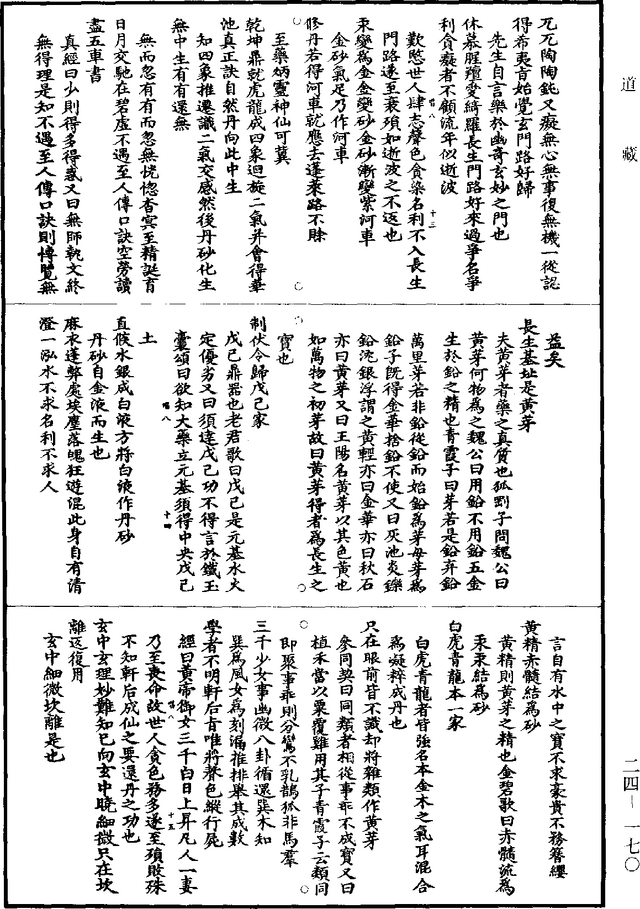 道藏
兀兀陶陶鈍又癡無心無事復無機一從認
得希夷肯始覺玄門路好歸
先生自言樂於幽奇玄妙之門也
休慕腥羶愛綺羅長生門路好來過爭名爭
利貪癡者不顧流年似逝波
歎愍世人肆志聲色貪染名利不入長生
門路遂至衰殞如逝波之不返也
汞變為金金變砂金砂漸變紫河車
金砂氣足乃作河車
修丹若得河車就應去蓬萊路不賒
至藥炳靈神仙可冀
乾坤鼎就虎龍成四象迴旋二氣并會得華
池真正訣自然丹向此中生
知四象推遷識二氣交感然後丹砂化生
無中生有有還無
無而忽有有而忽無恍惚杳冥至精誕育
日月交馳在碧虛不遇至人傳口訣空勞讀
盡五車書
真經曰少則得多得惑又曰無師執文終
無得理是知不遇至人傳口訣則博覽無
益矣
長生基址是黃芽
夫黃芽者藥之真質也狐剛子問魏公曰
黃芽何物為之魏公曰用鉛不用鉛五金
生於鉛之精也青霞子曰芽若是鉛弃鉛
萬里芽若非鉛從鉛而始鉛為芽母芽為
鉛子既得金華捨鉛不使又曰灰池炎鑠
鉛沈銀浮謂之黃輕亦曰金華亦曰秋石
亦曰黃芽又曰王陽名黃芽以其色黃也
如萬物之初芽故曰黃芽得者為長生之
寶也
制伏令歸戊己家
戊己鼎器也老君歌曰戊己是元基水火
定優劣又曰須達戊己功不得言於鐵玉
壺頌曰欲知大藥立元基須得中央戊己
土
直候水銀成白液方將白液作丹砂
丹砂自金液而生也
麻衣蓬弊處埃塵落魄狂遊混此身自有清
澄一泓水不求名利不求人
言自有水中之寶不求豪貴不務簪纓
黃精赤髓結為砂
黃精則黃芽之精也金碧歌曰赤髓流為
汞汞結為砂
白虎青龍本一家
白虎青龍者皆強名本金木之氣耳混合
為凝粹成丹也
只在眼前皆不識却將雜類作黃芽
參同契曰同類者相從事乖不成寶又曰
植禾當以粟覆雞用其子青霞子云類同
即聚事乖則分鸞不乳鵲狐非馬羣
三千少女事幽微八卦循還巽未知
巽為風女為刻漏推排舉其成數
學者不明軒后肯唯將聲色縱行屍
經曰黃帝御女三千白日上昇凡人一妻
乃至喪命故世人貪色務多遂至殞敗殊
不知軒后成仙之要還丹之功也
玄中玄理妙難知已向玄中曉細微只在坎
離返復用
玄中細微坎離是也
二四—一七〇